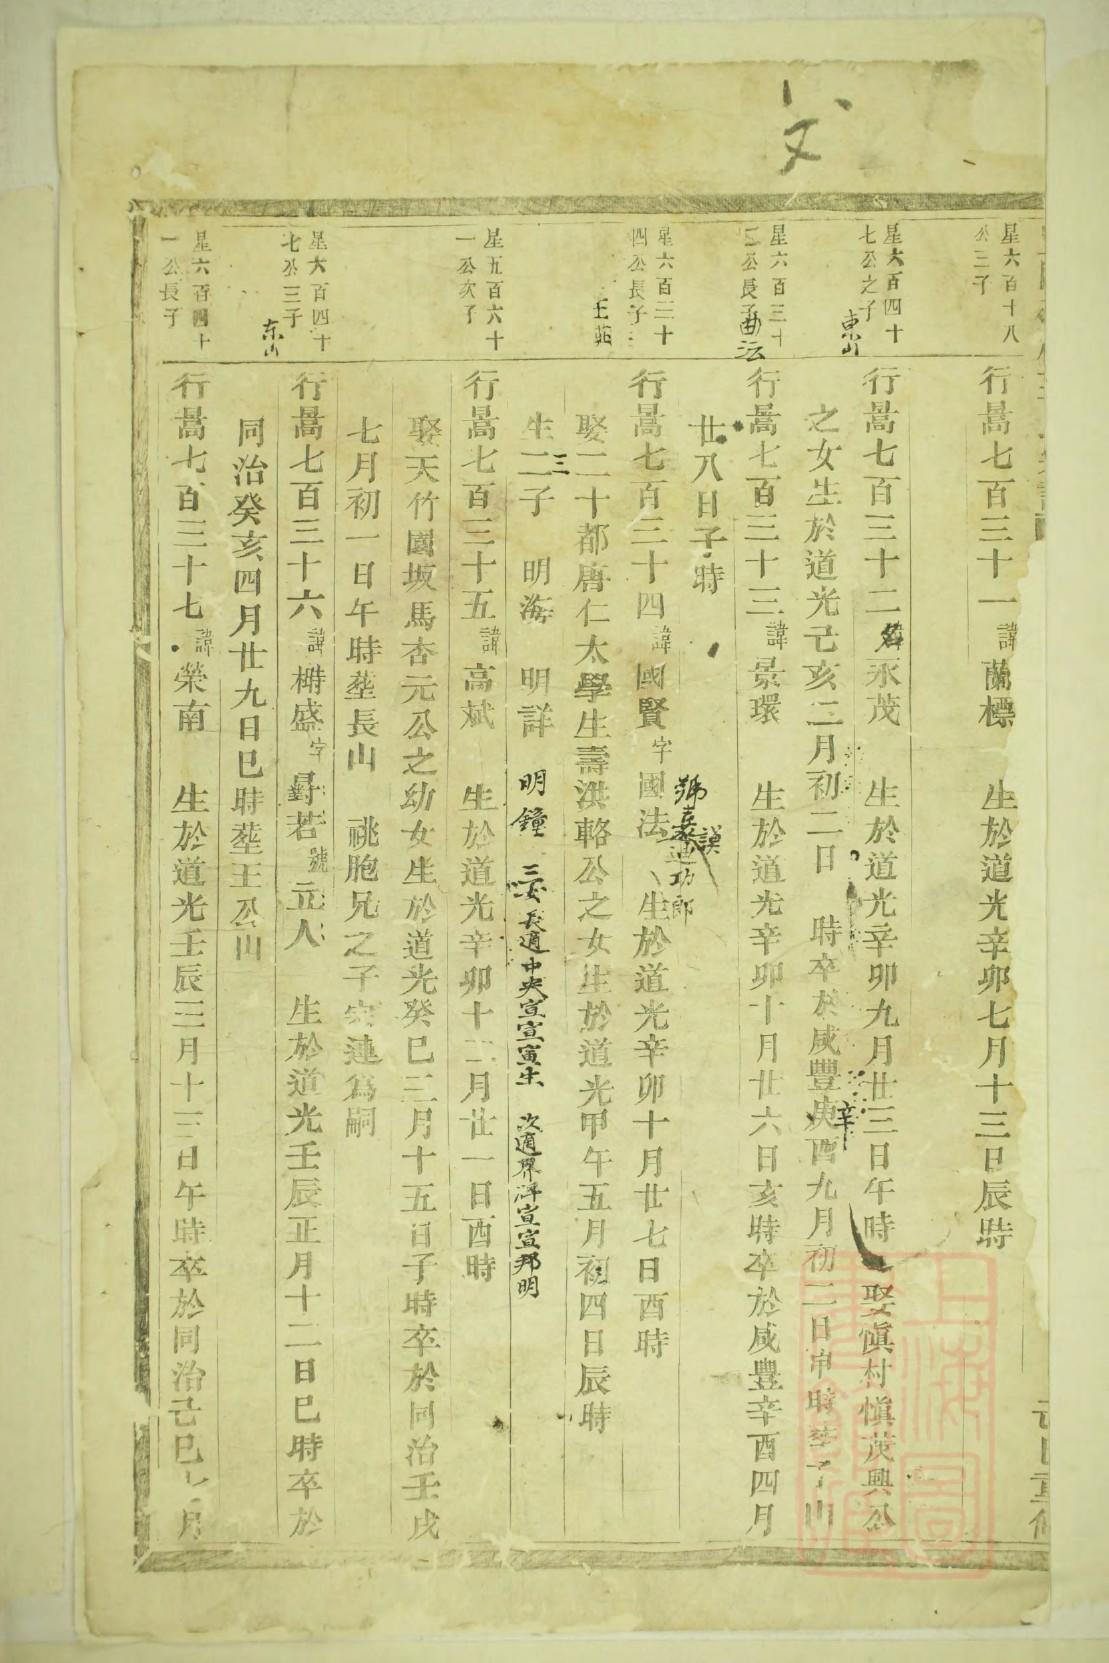 星六百十八
公三子
行暠七百三十一諱蘭標 生於道光辛卯七月十三日辰時
星六百四十
七公之子
東山
行暠七百三十二諱永茂 生於道光辛卯九月廿三日午時 娶慎村慎茂興公
之女生於道光己亥二月初二日 時卒於咸豐庚酉九月初二日申時 山
辛
星六百三十
公長子
行暠七百三十三諱景環 生於道光辛卯十月廿六日亥時卒於咸豐辛酉四月
廿八日子時
星六百二十
四公長子
行暠七百三十四諱國賢字國法 生於道光辛卯十月廿七日酉時
號 謨 功郎
娶二十都唐仁太學生壽洪輅公之女生於道光甲午五月初四日辰時
生二子 明海 明詳 明鐘 長適中央宣宣寅生 次適 宣宣邦明
三
星五百六十
一公次子
行暠七百三十五諱高斌 生於道光辛卯十二月廿一日酉時
娶天竹園坂馬杏元公之幼女生於道光癸巳三月十五日子時卒於同治壬戌
七月初一日午時塟長山 祧胞兄之子 連為嗣
星六百四十
七公三子
東山
行暠七百三十六諱 盛字 若號元人 生於道光壬辰正月十二日巳時卒於
同治癸亥四月廿九日巳時塟王公山
星六百四十
一公長子
行暠七百三十七諱榮南 生於道光壬辰三月十三日午時卒於同治己巳 月
上海圖書館藏